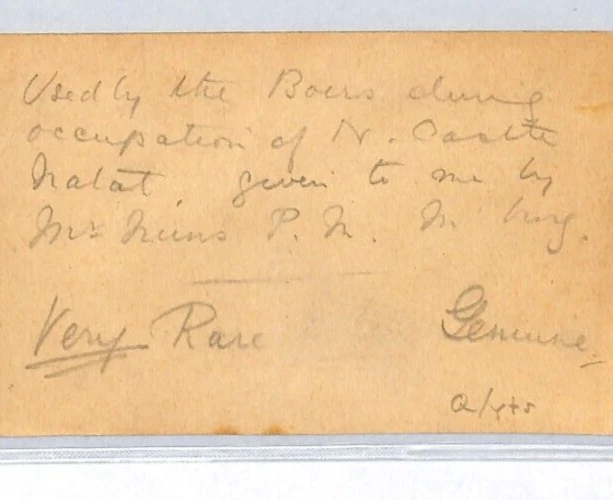 Used by the Boers during
occupation of N. Castle
Natal, given to me by
Mr P. M. M. burg.
Very Rare Genuine.